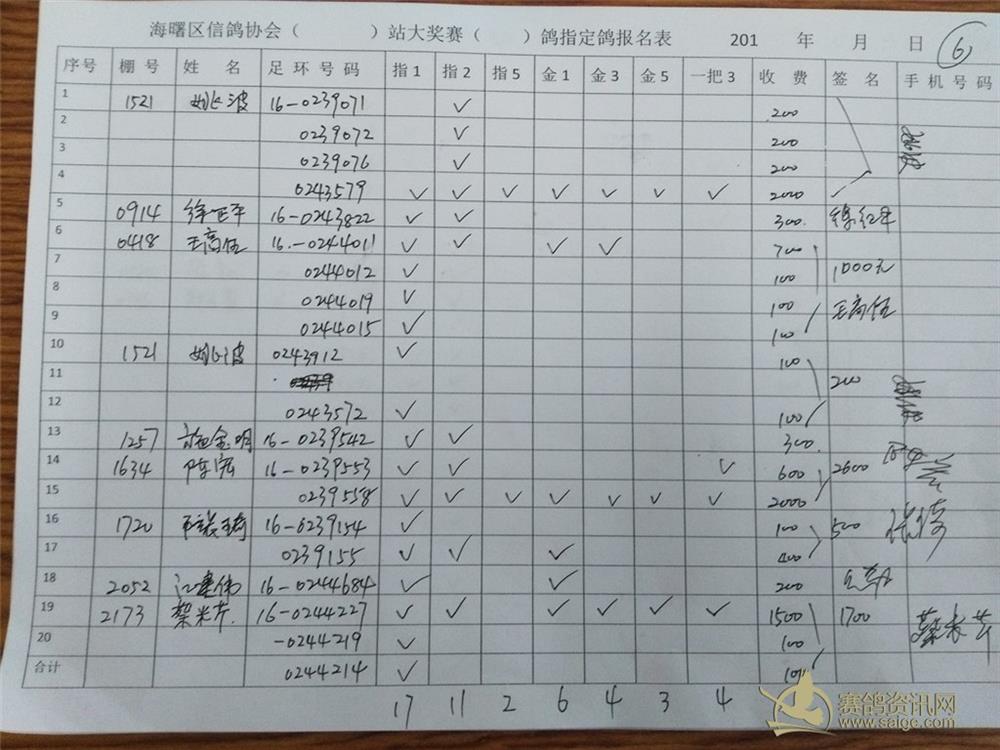 海曙区信鸽协会（ ）站大奖赛（ ）鸽指定鸽报名表 201 年 月 日 6
序号 棚号 姓名 足环号码 指1 指2 指5 金1 金3 金5 一把3 收费 签名 手机号码
1 1521 波 16-0239071 ✓ 200
2 0239072 ✓ 200
3 0239076 ✓ 200
4 0243579 ✓ ✓ ✓ ✓ ✓ ✓ ✓ 2000
5 0914 16-0243822 ✓ ✓ 300.
6 0418 王高伍 16.-0244011 ✓ ✓ ✓ ✓ 700
7 0244012 ✓ 100 1000元
8 0244019 ✓ 100 王高伍
9 0244015 ✓ 100
10 1521 波 0243912 ✓ 100
11 200
12 0243572 ✓ 100
13 1257 施金明 16-0239542 ✓ ✓ 300
14 1634 陈 16-0239553 ✓ ✓ ✓ 600 2600
15 0239558 ✓ ✓ ✓ ✓ ✓ ✓ ✓ 2000
16 1720 16-0239154 ✓ 100 500
17 0239155 ✓ ✓ ✓ 400
18 2052 江建伟 16-0244684 ✓ ✓ 200
19 2173 蔡米芹. 16-0244227 ✓ ✓ ✓ ✓ ✓ ✓ 1500 1700
20 -0244219 ✓ 100
合计 0244214 ✓ 100
17 11 2 6 4 3 4
赛鸽资讯网
www.saige.com